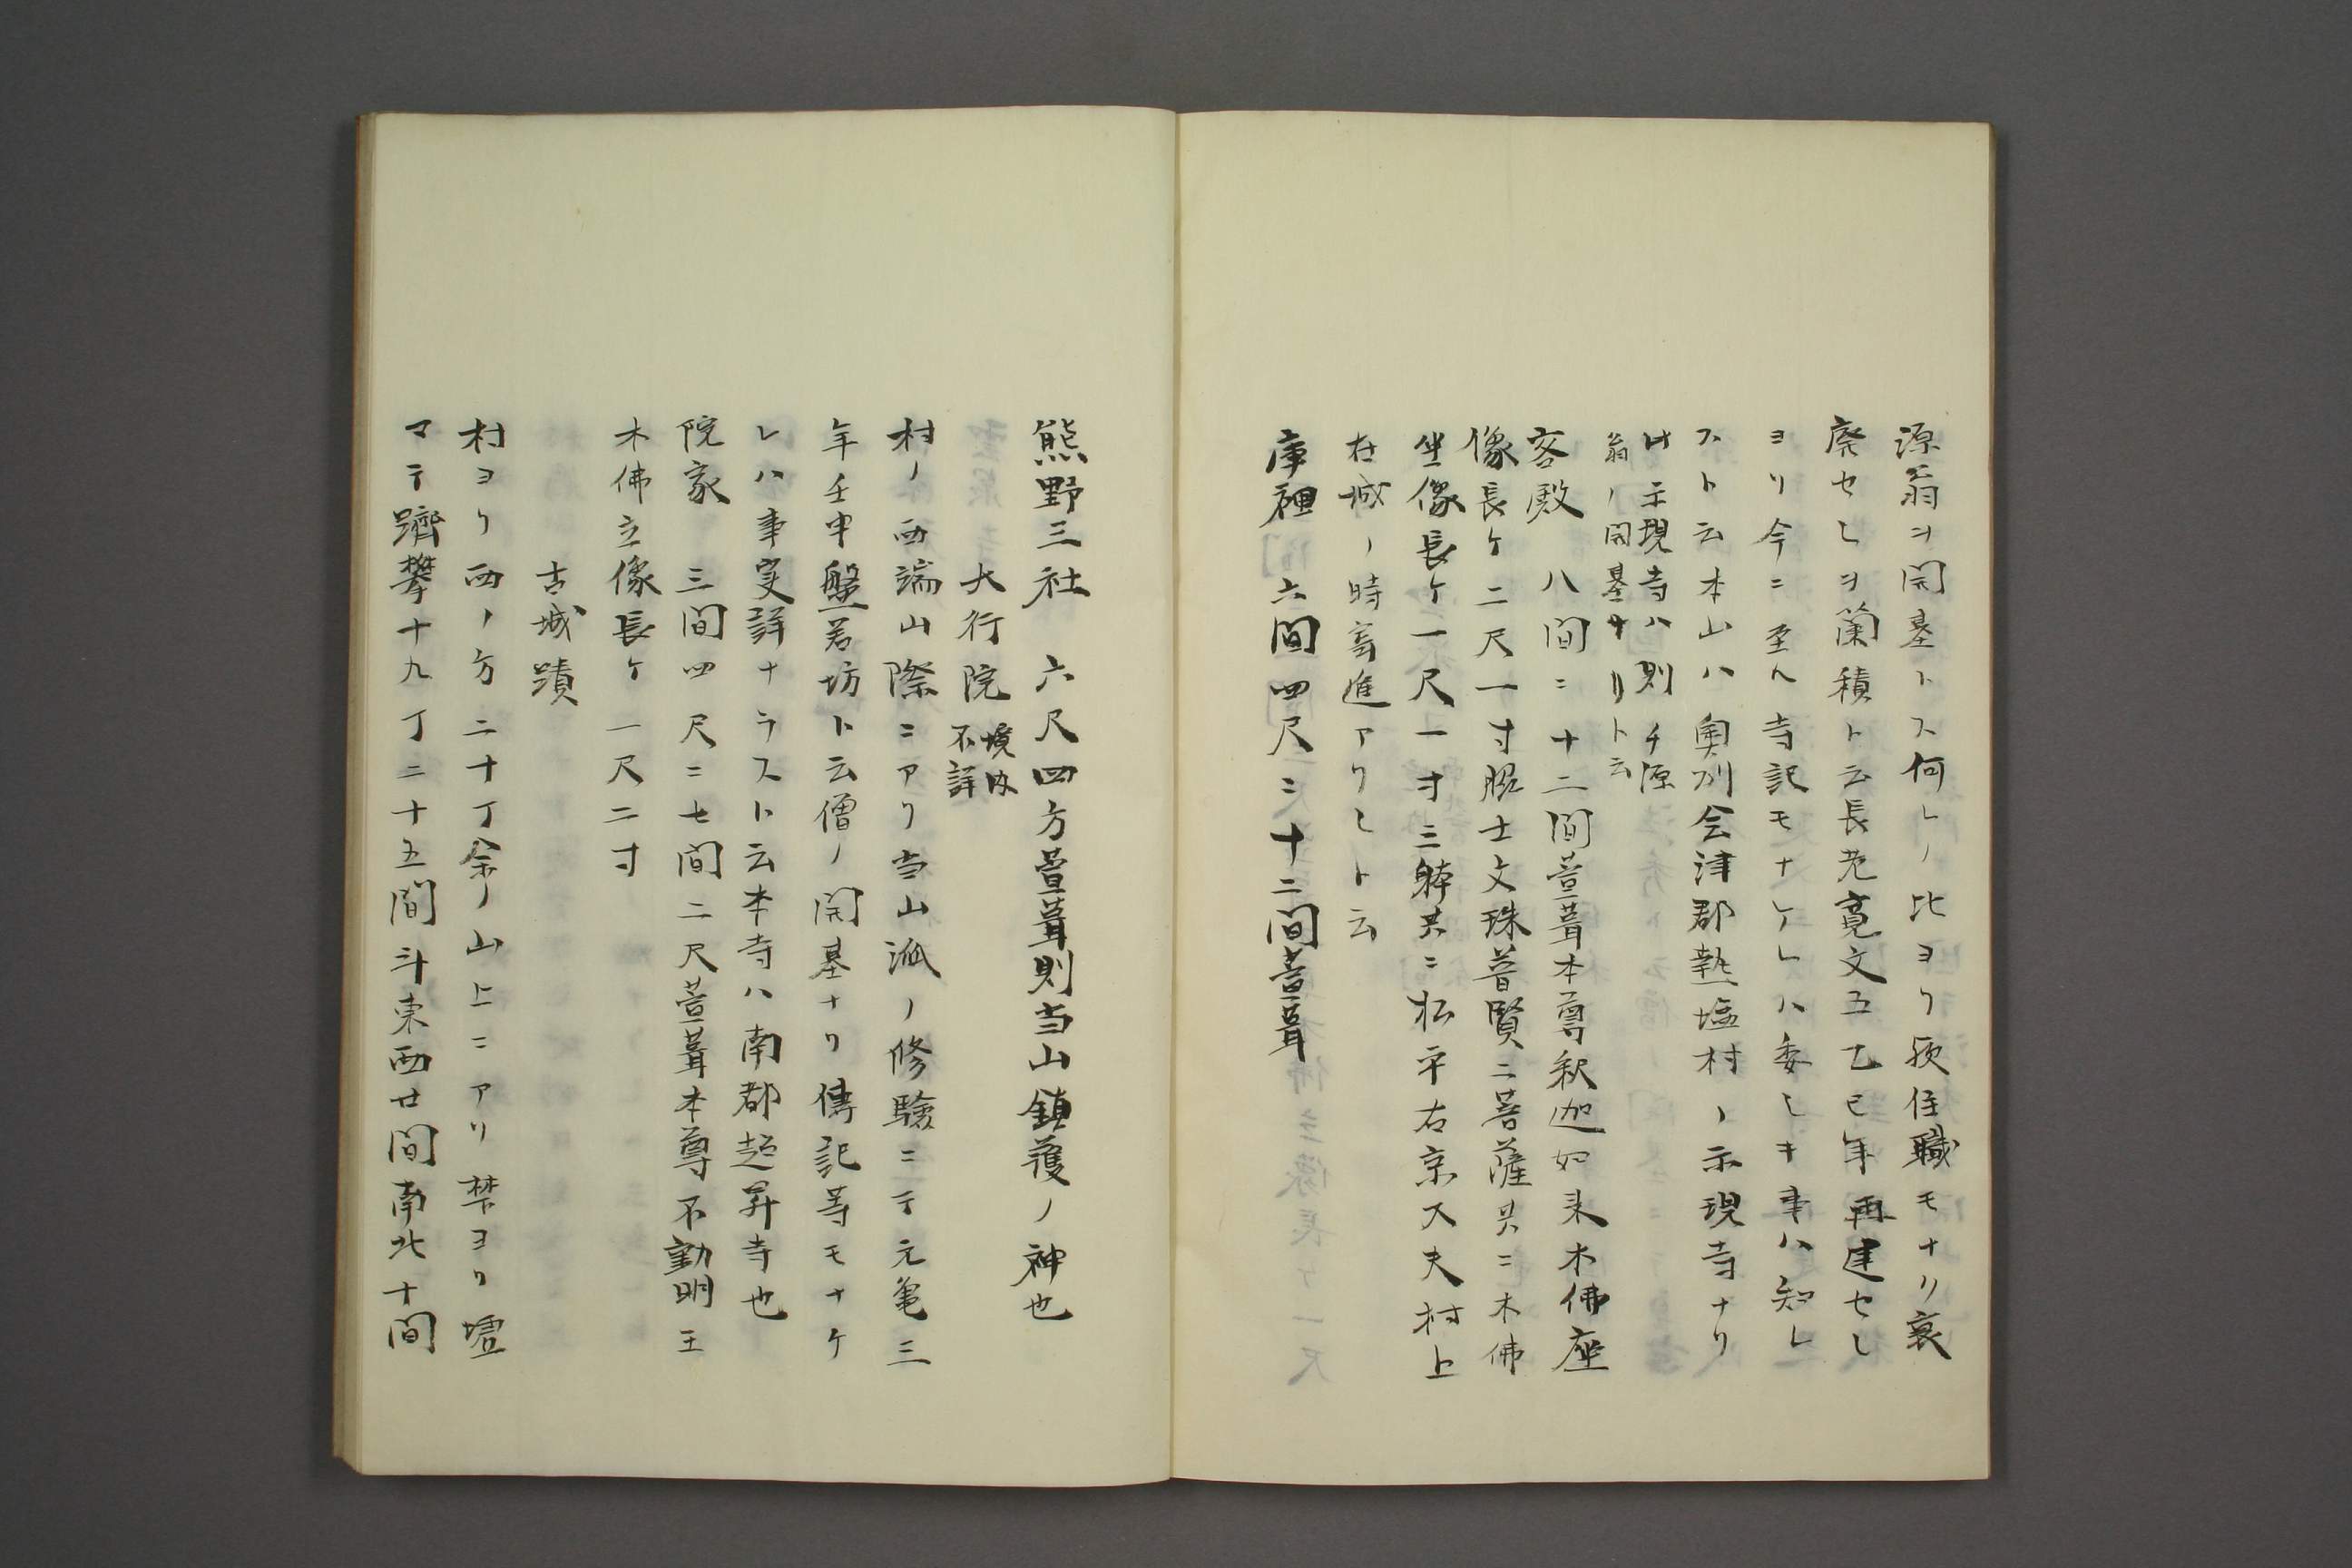 源翁ヲ開基トス何レノ比ヨリ歟住職モナリ衰
廃セシヲ蘭積ト云長老寛文五乙巳年再建セシ
ヨリ今ニ至ル寺記モナケレハ委シキ事ハ知レ
スト云本山ハ奥州会津郡熱塩村ノ示現寺ナリ
此示現寺ハ則チ源
翁ノ開基ナリト云
客殿　八間ニ十二間萱葺本尊釈迦如来木佛座
像長ケ二尺一寸脇士文珠普賢二菩薩共ニ木佛
坐像長ケ一尺一寸三躰共ニ松平右京大夫村上
在城ノ時寄進アリシト云
庫裡　六間四尺ニ十二間萱葺
熊野三社　六尺四方萱葺則当山鎮護ノ神也
大行院 境内不詳
村ノ西端山際ニアリ当山派ノ修験ニテ元亀三
年壬申盤若坊ト云僧ノ開基ナリ傳記等モナケ
レハ事実詳ナラスト云本寺ハ南都超昇寺也
院家　三間四尺ニ七間二尺萱葺本尊不動明王
木佛立像長ケ一尺二寸
古城蹟
村ヨリ西ノ方二十丁余ノ山上ニアリ梺ヨリ墟
マテ躋攀十九丁二十五間斗東西廿間南北十間